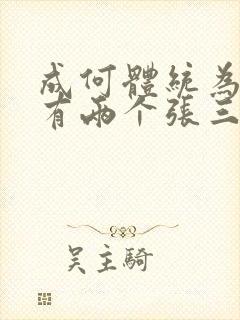 成何體統為
有兩个張三
吴主騎